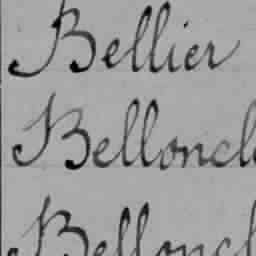 Bellier
Belloncl
Belloncl